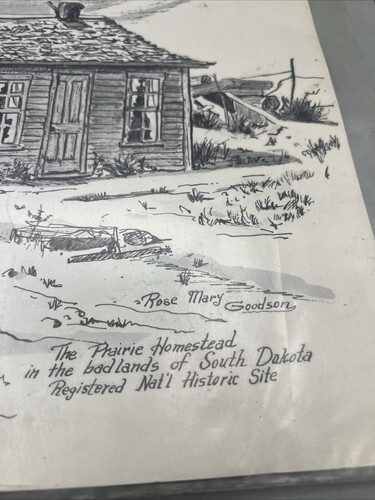 Rose Mary Goodson
The Prairie Homestead
in the badlands of South Dakota
Registered Nat'l Historic Site